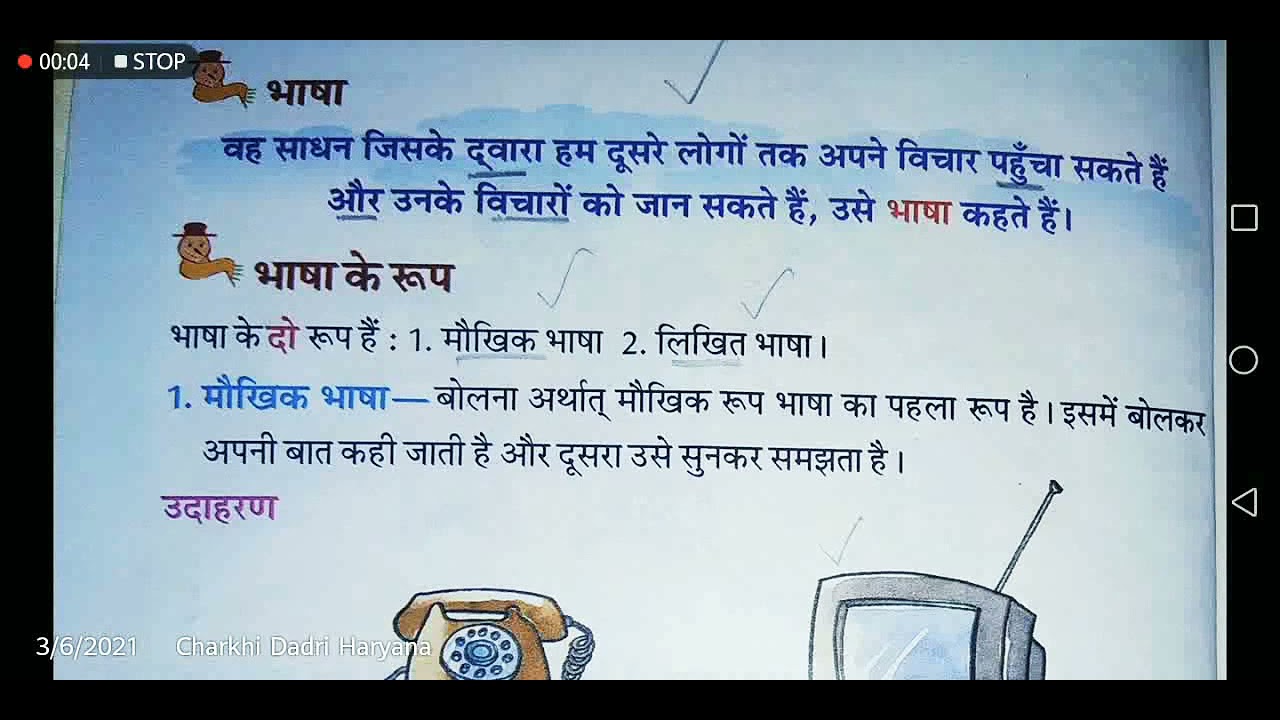 00:04 STOP
भाषा
वह साधन जिसके द्वारा हम दूसरे लोगों तक अपने विचार पहुँचा सकते हैं
और उनके विचारों को जान सकते हैं, उसे भाषा कहते हैं।
भाषा के रूप
भाषा के दो रूप हैं : 1. मौखिक भाषा 2. लिखित भाषा।
1. मौखिक भाषा— बोलना अर्थात् मौखिक रूप भाषा का पहला रूप है। इसमें बोलकर
अपनी बात कही जाती है और दूसरा उसे सुनकर समझता है।
उदाहरण
3/6/2021 Charkhi Dadri Haryana